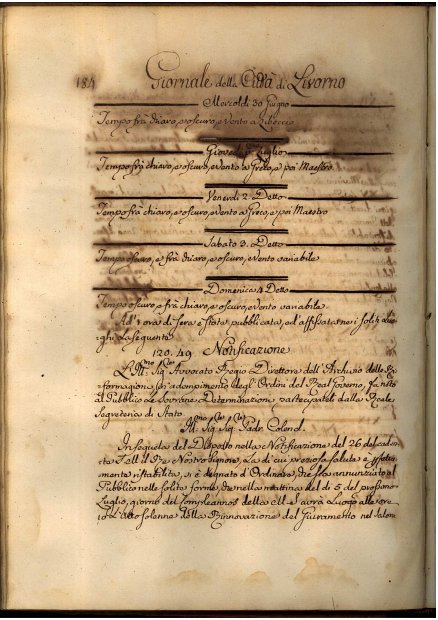 184 Giornale della Città di Livorno
Mercoldì 30 Giugno
Tempo frà chiaro, e oscuro, e Vento a Libeccio
Giovedì p.º Luglio
Tempo frà chiaro, e oscuro, e Vento a Greco, e poi Maestro
Venerdì 2. Detto
Tempo frà chiaro, e oscuro, e Vento a Greco, e poi Maestro
Sabato 3. Detto
Tempo oscuro, e frà chiaro, e oscuro, e Vento variabile
Domenica 4 Detto
Tempo oscuro, e frà chiaro, e oscuro, e Vento variabile
Ad' ora di sera è stata pubblicata, ed' affissata nei soliti Luo
ghi la seguente
120. 49. Notificazione
L'Ill.mo Sig.re Avvocato Regio Direttore dell'Archivio delle Ri
formagioni in adempimento degl'Ordini del Real Governo, fà noto
al Pubblico le Sovrane Determinazioni partecipateli dalla Reale
Segreteria di Stato
Ill.mo Sig. Sig. Padr. Colend.
In sequela del Disposto nella Notificazione del 26 del caden
te S. M. il Rè Nostro Signore, la di cui preziosa salute è
mente ristabilita, si è degnato d'Ordinare, che sia annunziato al
Pubblico nelle solite forme, che nella mattina del dì 5 del prossimo
Luglio, giorno del Compleannos della M. S. avrà Luogo alle ore
10 l'Atto solenne della Rinnovazione del Giuramento nel Salone